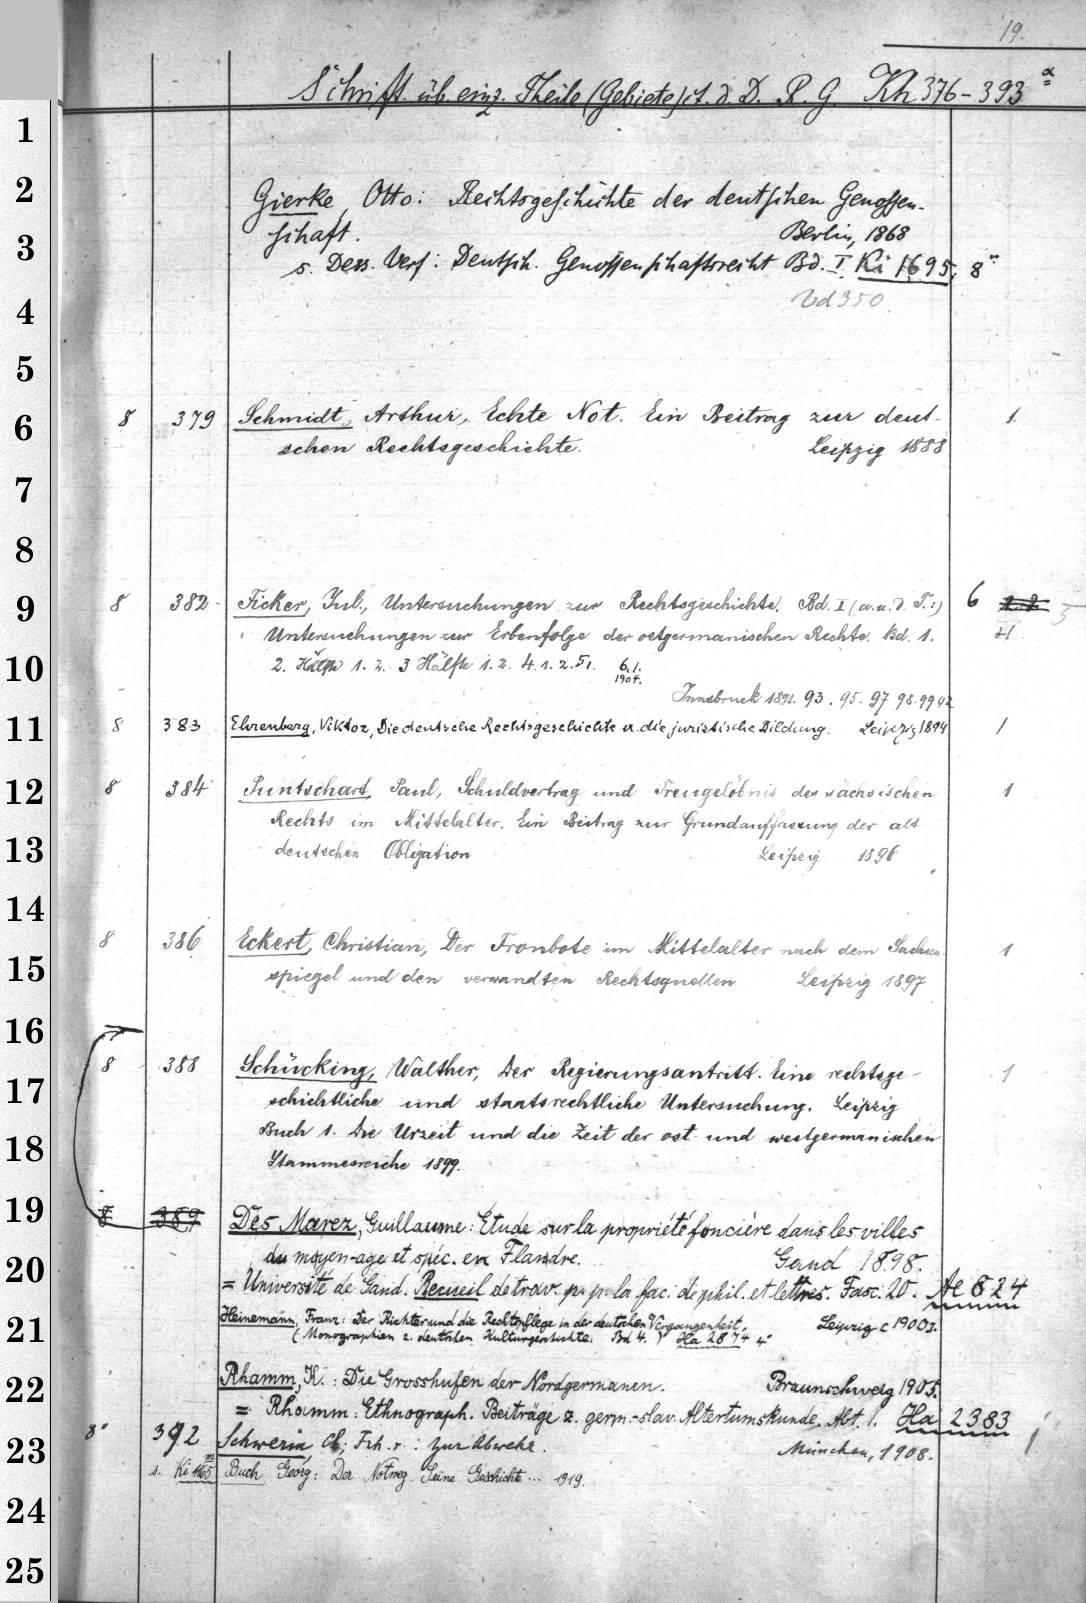 19.
Schrift. üb. einz. Theile (Gebiete) d. D. R. G Kh 376-393 a
1
2 Gierke, Otto: Rechtsgeschichte der deutschen Genossen-
3 schaft. Berlin, 1868
s. Dess. Verf: Deutsch. Genossenschaftsrecht Bd. I Ki 1695, 8°
4 350
5
6 8 379 Schmidt, Arthur, Echte Not. Ein Beitrag zur deut- 1.
schen Rechtsgeschichte. Leipzig 1888
7
8
9 8 382 Ficker, Jul., Untersuchungen zur Rechtsgeschichte. Bd. I (a. u. d. T.:) 6
Untersuchungen zur Erbenfolge der ostgermanischen Rechte. Bd. 1.
10 2. Hälfte 1. 2. 3 Hälfte 1. 2. 4. 1. 2. 5 1. 6.1. 1904.
Innsbruck 1891. 93. 95. 97 98. 99 02
11 8 383 Ehrenberg, Viktor, Die deutsche Rechtsgeschichte u. die juristische Bildung. Leipzig 1894 1
12 8 384 Puntschart, Paul, Schuldvertrag und Treugelöbnis des sächsischen 1
Rechts im Mittelalter. Ein Beitrag zur Grundauffassung der alt
13 deutschen Obligation Leipzig 1896
14
8 386 Eckert, Christian, Der Fronbote im Mittelalter nach dem Sachsen 1
15 spiegel und den verwandten Rechtsquellen Leipzig 1897
16
8 388 Schücking, Walther, Der Regierungsantritt. Eine rechtsge- 1
17 schichtliche und staatsrechtliche Untersuchung. Leipzig
18 Buch 1. Die Urzeit und die Zeit der ost- und westgermanischen
Stammesreiche 1899.
19 8 389 Des Marez, Guillaume: Etude sur la propriété foncière dans les villes
20 du moyen-age et spéc. en Flandre. Gand 1898.
= Université de Gand. Recueil de trav. p. p. la fac. de phil. et lettres. Fasc. 20. Ae 824
21 Heinemann, Franz: Der Richter und die Rechtspflege in der deutschen Vergangenheit. Leipzig c 1900.
(Monographien z. deutschen Kulturgeschichte. Bd 4.) Ha 2874 4°
22 Rhamm, K.: Die Grosshufen der Nordgermanen. Braunschweig 1905.
= Rhamm: Ethnograph. Beiträge z. germ.-slav. Altertumskunde. Abt. 1. Ha 2383
23 8° 392 Schwerin Cl., Frh. v.: Zur Abwehr. München, 1908. 1
s. Ki Buch Georg: Der Notweg. Seine Geschichte ... 1919.
24
25